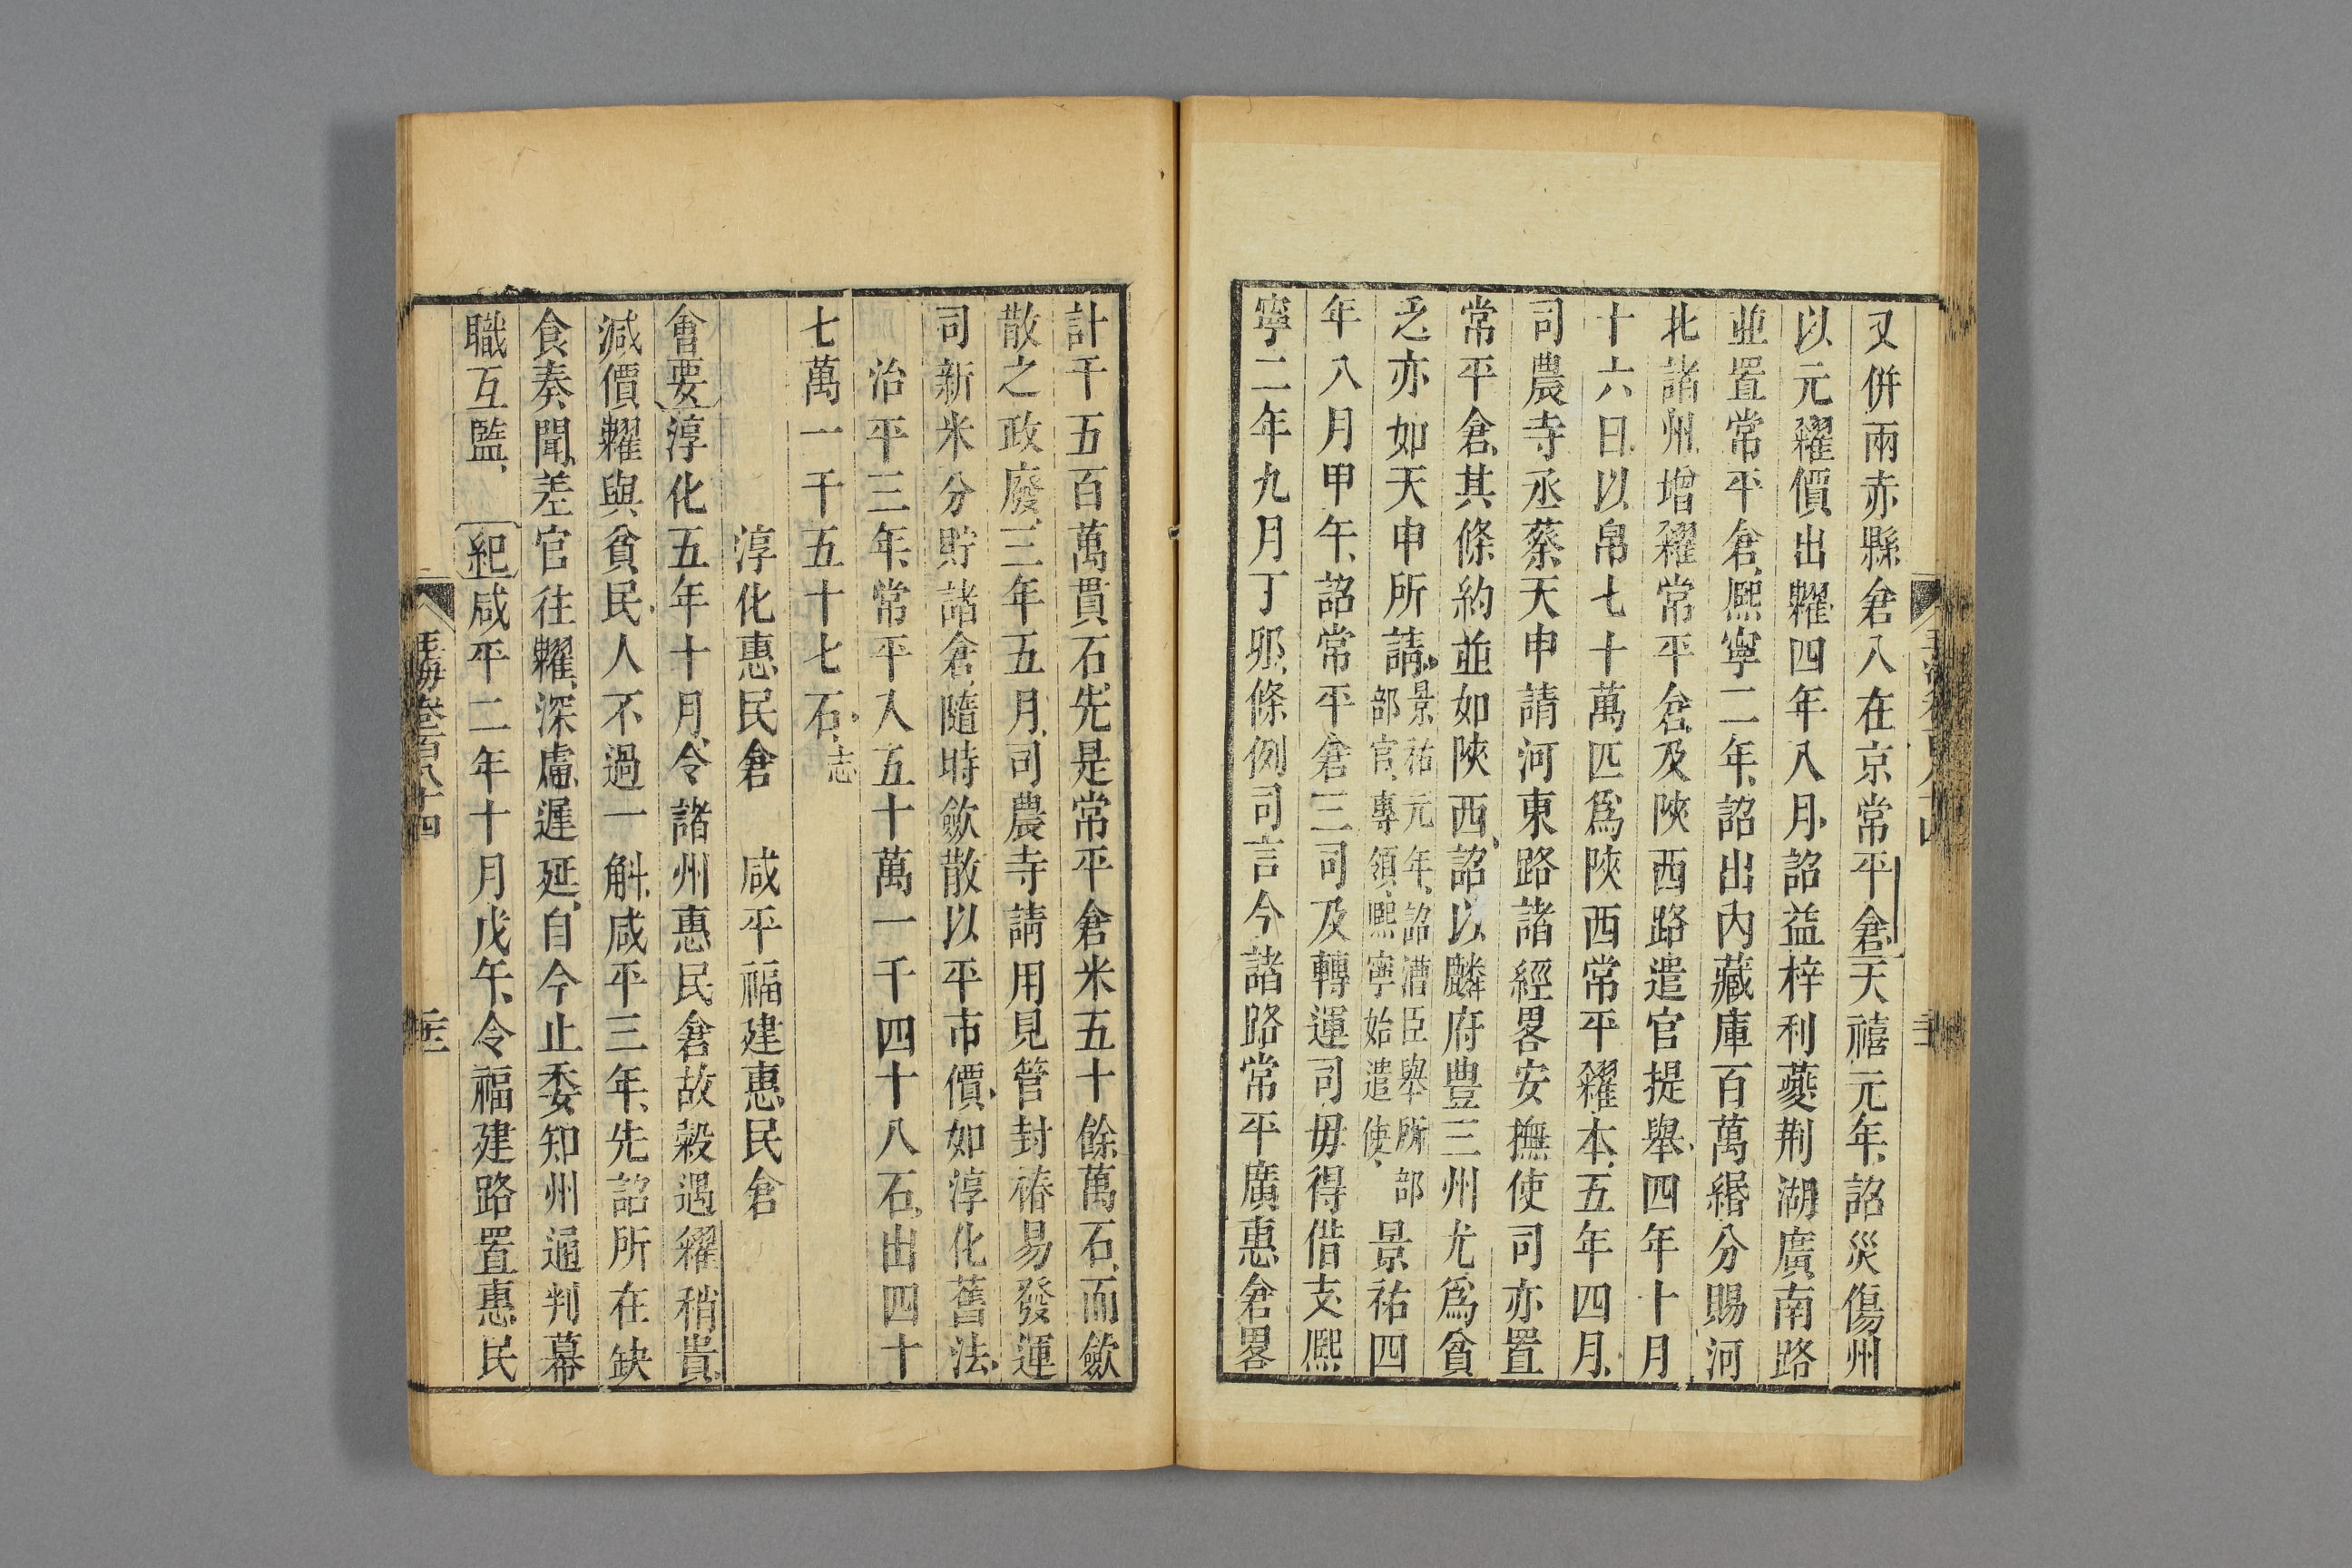 又併兩赤縣倉入在京常平倉天禧元年詔災傷州
以元糴價出糶四年八月詔益梓利夔荆湖廣南路
並置常平倉熈寧二年詔出內藏庫百萬緡分賜河
北諸州增糴常平倉及陝西路遣官提舉四年十月
十六日以帛七十萬匹爲陝西常平糴本五年四月
司農寺丞蔡天申請河東路諸經畧安撫使司亦置
常平倉其條約並如陝西詔以麟府豊三州尤爲貧
乏亦如天申所請景祐元年詔漕臣舉所部部官專領熈寧始遣使景祐四
年八月甲午詔常平倉三司及轉運司毋得借支熈
寧二年九月丁邜條例司言今諸路常平廣惠倉畧
計千五百萬貫石先是常平倉米五十餘萬石而歛
散之政廢三年五月司農寺請用見管封樁易發運
司新米分貯諸倉隨時歛散以平市價如淳化舊法
治平三年常平入五十萬一千四十八石出四十
七萬一千五十七石志
淳化惠民倉　咸平福建惠民倉
會要淳化五年十月令諸州惠民倉故穀遇糴稍貴
減價糶與貧民人不過一斛咸平三年先詔所在缺
食奏聞差官往糶深慮遲延自今止委知州通判幕
職互監　紀咸平二年十月戊午令福建路置惠民
玉海卷百八十四